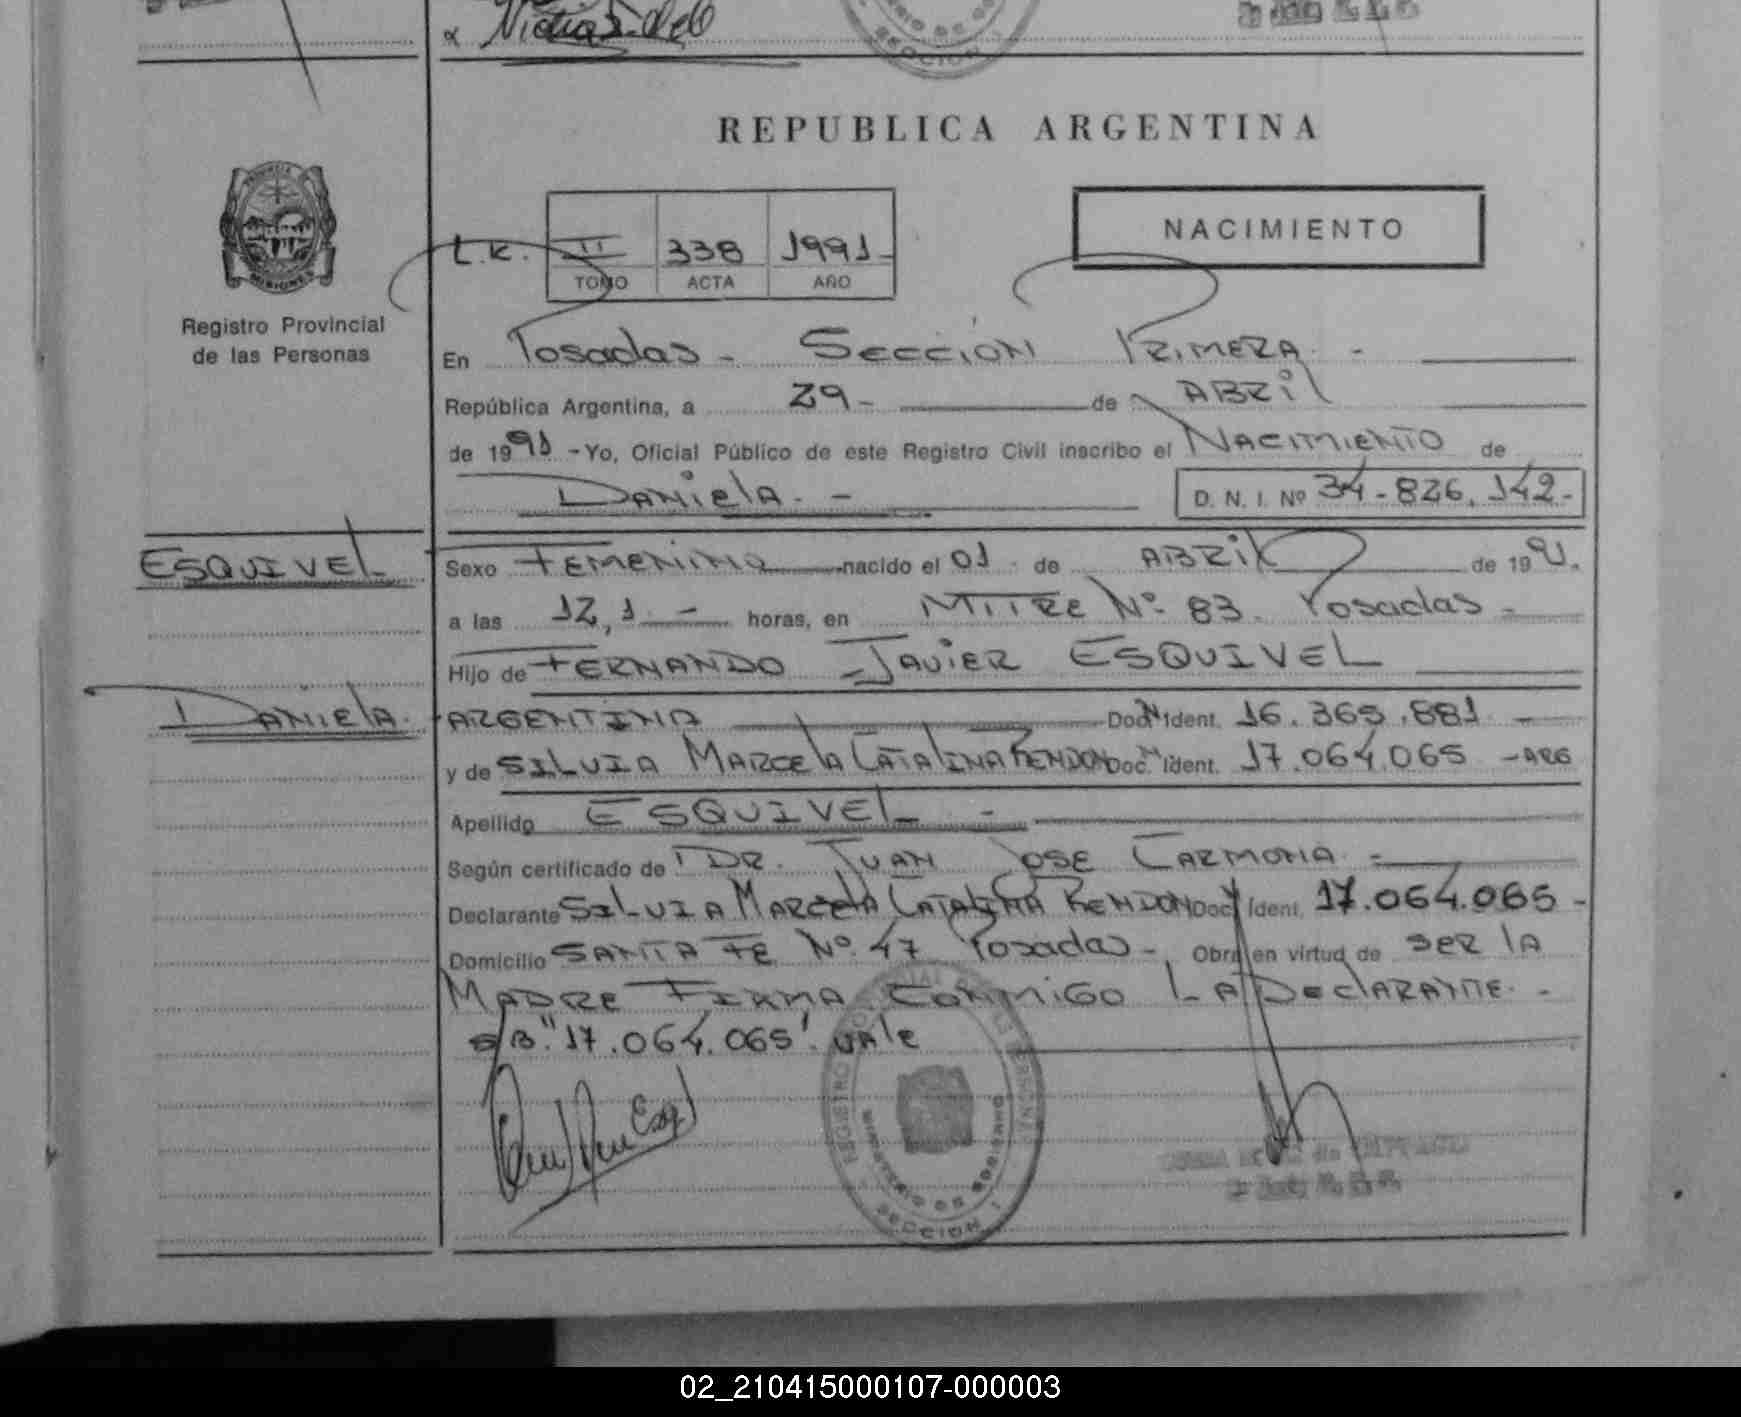 REPUBLICA ARGENTINA
NACIMIENTO
L.K. II 338 1991
TOMO ACTA AÑO
Registro Provincial
de las Personas
En Posadas - SECCION PRIMERA -
República Argentina, a 29 - de ABRIL
de 1991 - Yo, Oficial Público de este Registro Civil inscribo el NACIMIENTO de
DANIELA. - D. N. I. Nº 34-826.142-
ESQUIVEL
DANIELA.
Sexo FEMENINO nacido el 01 de ABRIL de 1991.
a las 12,1 - horas, en MITRE Nº 83. Posadas -
Hijo de FERNANDO JAVIER ESQUIVEL
ARGENTINA Doc. N Ident. 16.365.881 -
y de SILVIA MARCELA CATALINA RENDON Doc. N Ident. 17.064.065 - ARG
Apellido ESQUIVEL -
Según certificado de DR. JUAN JOSE CARMONA -
Declarante SILVIA MARCELA CATALINA RENDON Doc. Ident. 17.064.065 -
Domicilio SANTA FE Nº 47 Posadas -, Obra en virtud de SER LA
MADRE FIRMA CONMIGO LA DECLARANTE. -
S/B "17.064.065" VALE
REGISTRO PROVINCIAL DE LAS PERSONAS
MINISTERIO DE GOBIERNO
SECCION 1
02_210415000107-000003